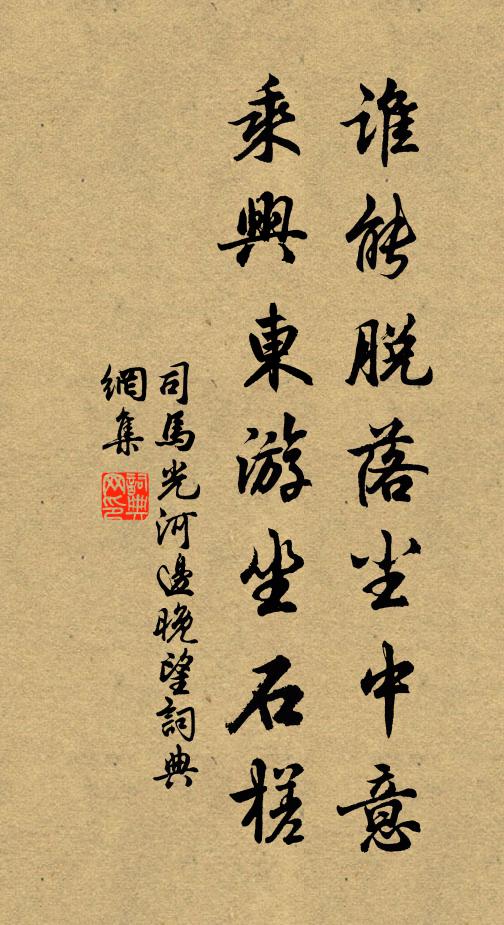 誰能脫落尘中意
乘興東游坐石槎
司馬光河邊晚望詞典
網集
詞典
网印